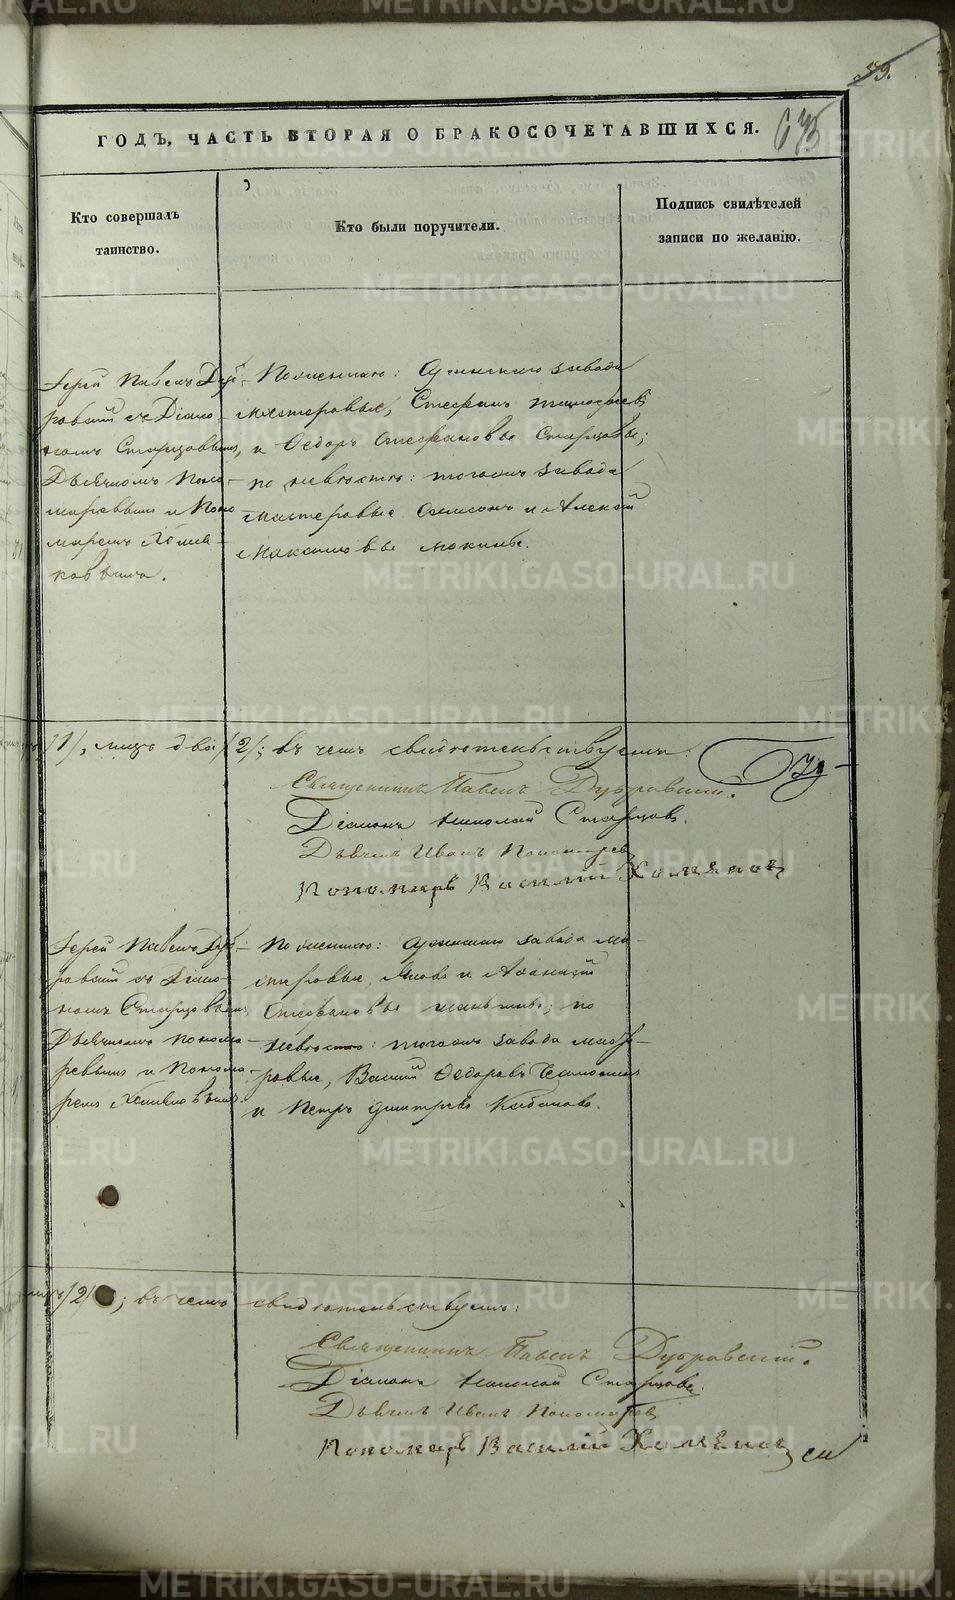 59.
ГОДЪ, ЧАСТЬ ВТОРАЯ О БРАКОСОЧЕТАВШИХСЯ.
Кто совершалъ
таинство.
Кто были поручители.
Подпись свидѣтелей
записи по желанію.
Іерей Павелъ Дуб-
ровскій съ Діако-
номъ Старцовымъ,
Дьячкомъ Поно-
маревымъ и Поно-
маремъ Хомя-
ковымъ.
По женихѣ: завода
мастеровые, Стефанъ
и Ѳедоръ Стефановы Старцовы;
по невѣстѣ: тогожъ завода
мастеровые Самсонъ и Алексѣй
Максимовы
/1/, лицъ два /2/; въ чемъ свидѣтельствуемъ:
Священникъ Павелъ Дубровскій.
Діаконъ Николай Старцовъ.
Дьячекъ Иванъ Пономаревъ
Пономарь Василій Хомяковъ
Іерей Павелъ Дуб-
ровскій съ Діако-
номъ Старцовымъ,
Дьячкомъ Понома-
ревымъ и Понома-
ремъ Хомяковымъ.
По женихѣ: завода ма-
стеровые, Яковъ и Аѳанасій
Стефановы по
невѣстѣ: тогожъ завода масте-
ровые, Василій Ѳедоровъ
и Петръ Дмитріевъ Кабановъ.
/2/; въ чемъ свидѣтельствуемъ:
Священникъ Павелъ Дубровскій.
Діаконъ Николай Старцовъ.
Дьячекъ Иванъ Пономаревъ
Пономарь Василій Хомяковъ
METRIKI.GASO-URAL.RU